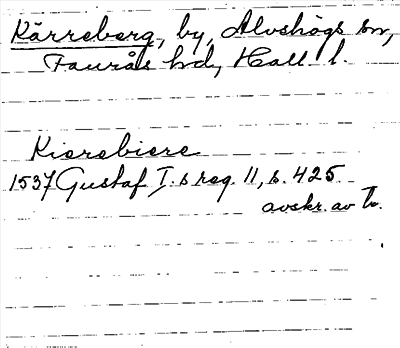 Kärreberg, by, Alvshögs sn,
Faurås hd, Hall. l.
Kierebiere
1537 Gustaf I:s reg. 11, s. 425
avskr. av